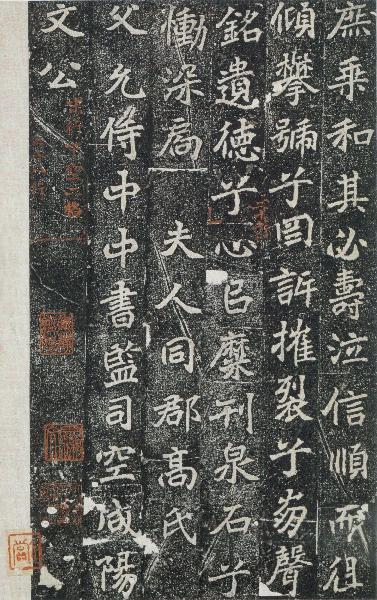 庶乘和其必壽泣信順而徂
傾攀號兮罔訴摧裂兮聲
銘遺德兮心已糜刊泉石兮
慟深扃 夫人同郡高氏
父允侍中中書監司空咸陽
文公